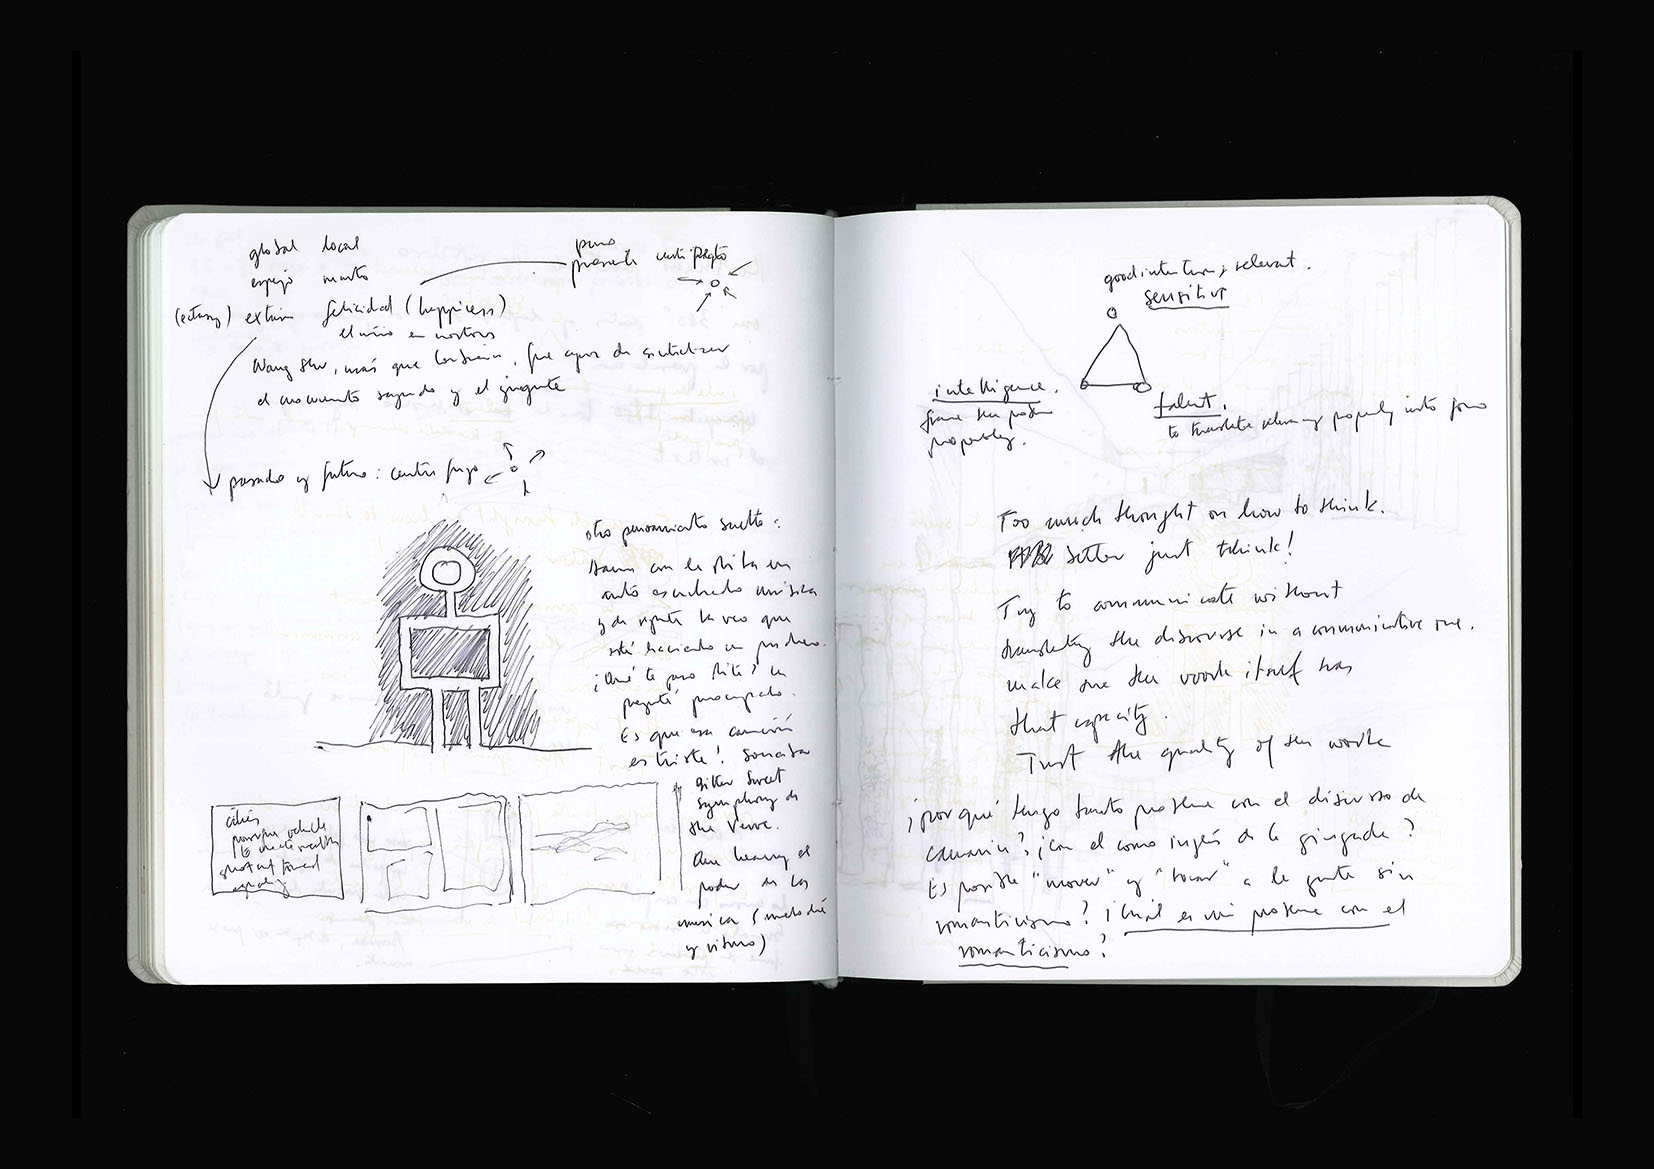 global local
espejo manto
(ectasy) extasis felicidad (happiness)
el niño en nosotros
puro
presente centrípeto
Wang Shu, más que , fue capaz de sintetizar
el momento sagrado y el juguete
pasado y futuro: centrífugo
otro pensamiento suelto:
con la Rita en
auto escuchando música
y de repente la veo que
está haciendo un puchero.
¿Qué te pasa Rita? le
pregunté preocupado.
Es que esa canción
es triste! Sonaba
Bitter Sweet
Symphony de
the Verve.
Que heavy el
poder de la
música (melodía
y ritmo)
cities
powerful vehicle
to
shortcut toward
equality
good intentions, relevant.
sensitive
intelligence.
frame the problem
properly.
talent.
to translate properly into form
Too much thought on how to think.
better just think!
Try to communicate without
translating the discourse in a communicative one.
make sure the work itself has
that capacity.
Trust the quality of the work
¿porqué tengo tanto problema con el discurso de
? ¿Con el como inglés de la gringada?
Es posible "mover" y "tocar" a la gente sin
romanticismo? ¿Cuál es mi problema con el
romanticismo?